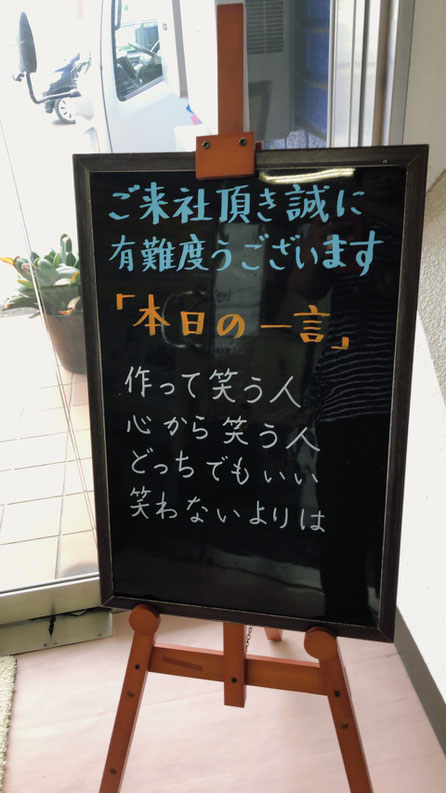 ご来社頂き誠に
有難度うございます
「本日の一言」
作って笑う人
心から笑う人
どっちでもいい
笑わないよりは